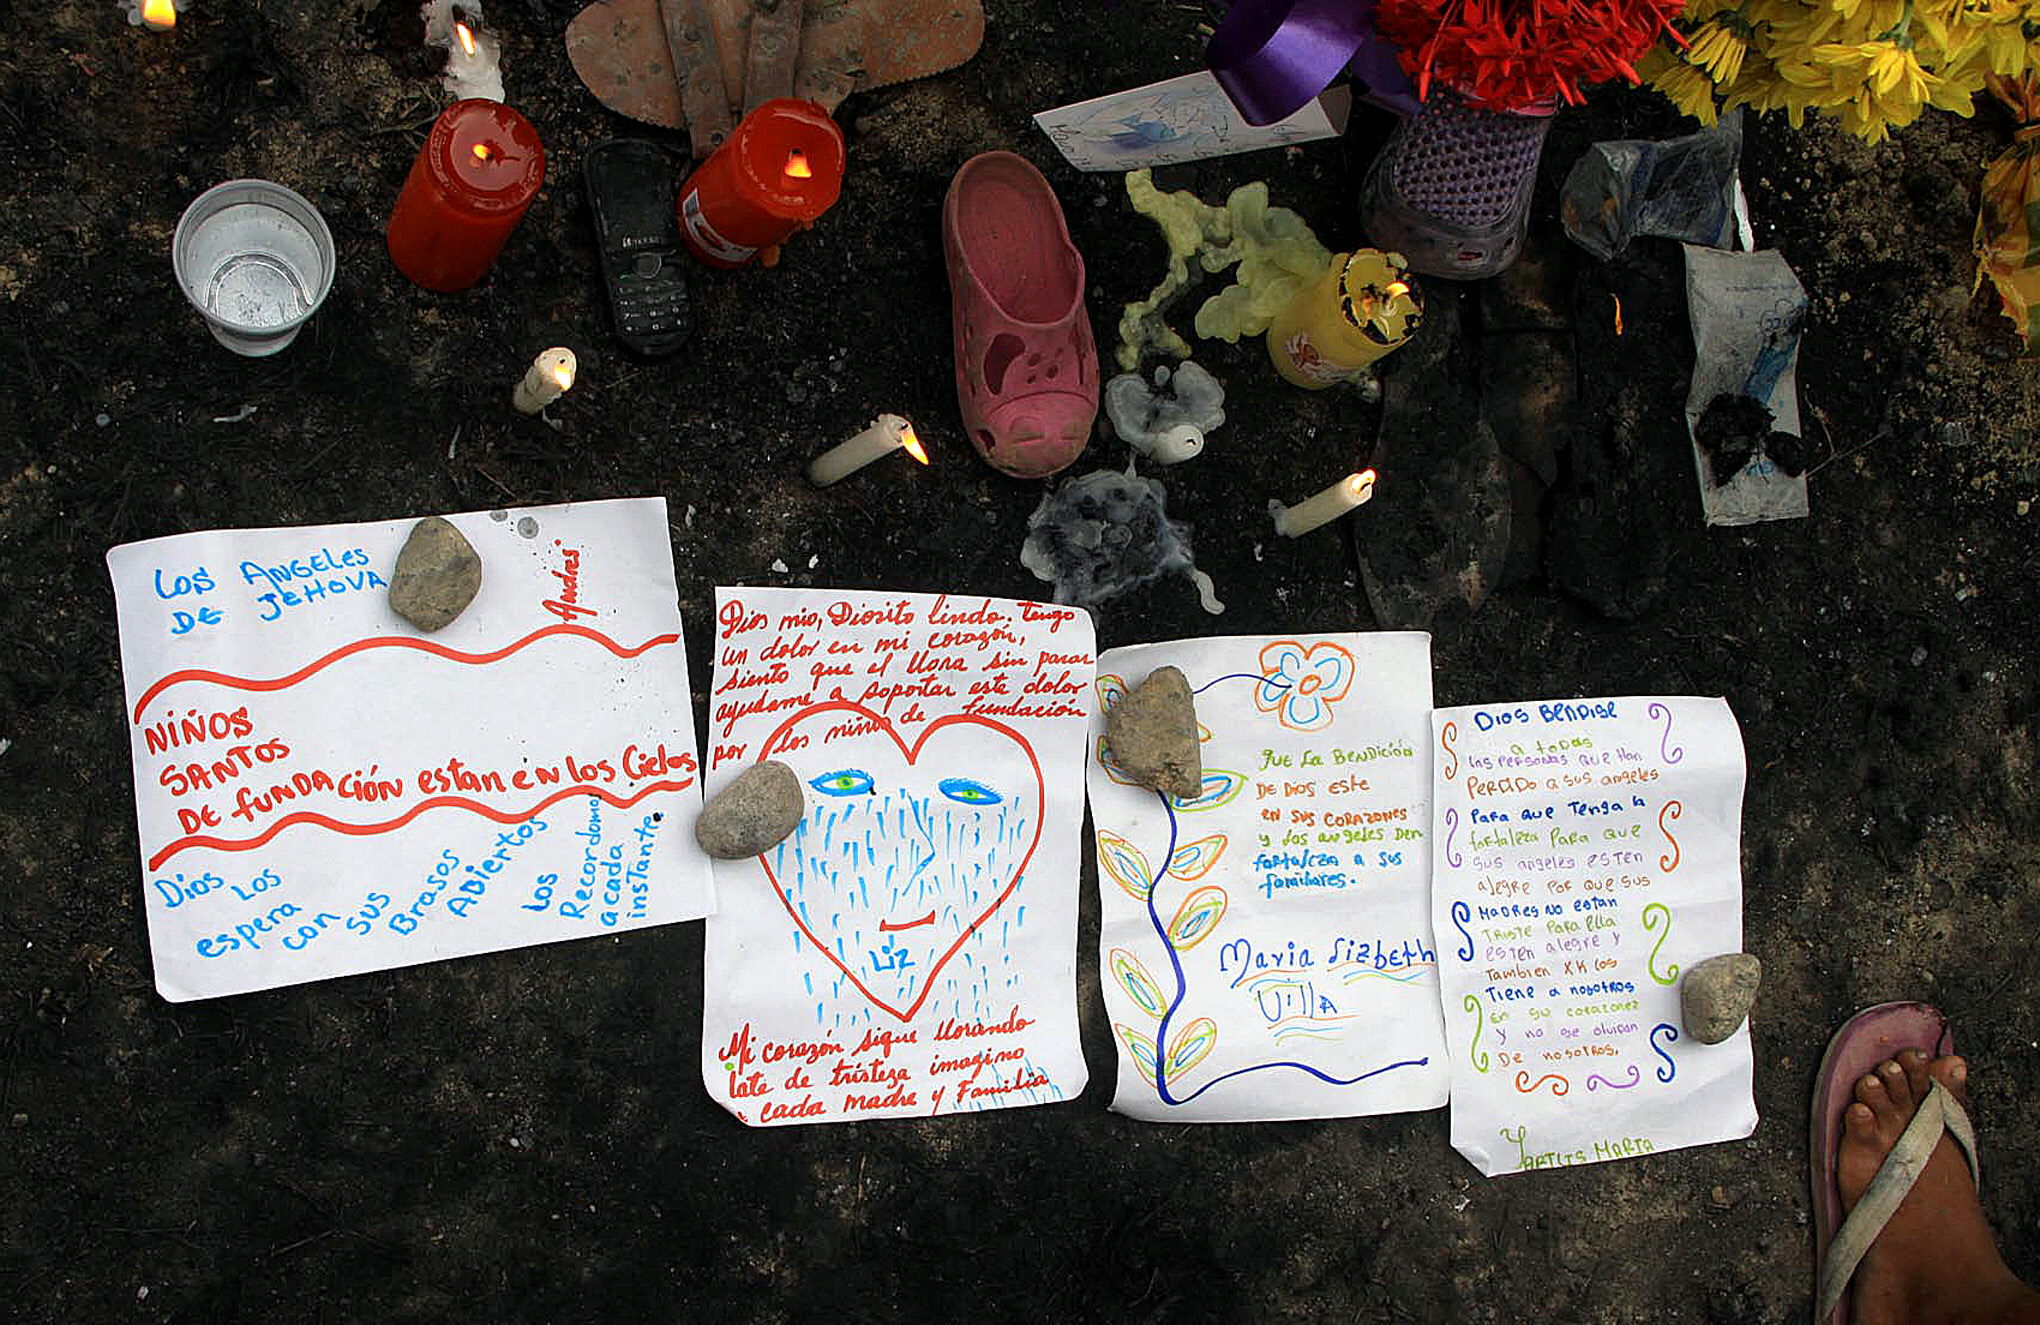 LOS ANGELES
DE JEHOVA
Andres
NIÑOS
SANTOS
DE fUNDACIÓN estan en los Cielos
Dios los
espera
con
sus
Brasos
Abiertos
los
Recordamos
a cada
instante.
Dios mio, Diosito lindo. tengo
un dolor en mi corazón,
siento que el llora sin parar
ayudame a soportar este dolor
por los niños de fundación
Liz
Mi corazón sigue llorando
late de tristeza imagino
cada madre y Familia
Que La BENDICIÓN
DE DIOS este
en sus CORAZONES
y los angeles Den
fortaleza a sus
familiares.
Maria Lizbeth
Villa
DIOS BENDISE
a todas
las personas que Han
PERDIDO a sus angeles
Para que Tenga la
fortaleza Para Que
sus angeles esten
alegre por que sus
MADRES NO estan
TRISTE Para ella
esten alegre y
Tambien XK los
Tiene a nosotros
En su corazones
Y no se olvidan
De nosotros.
MARIA